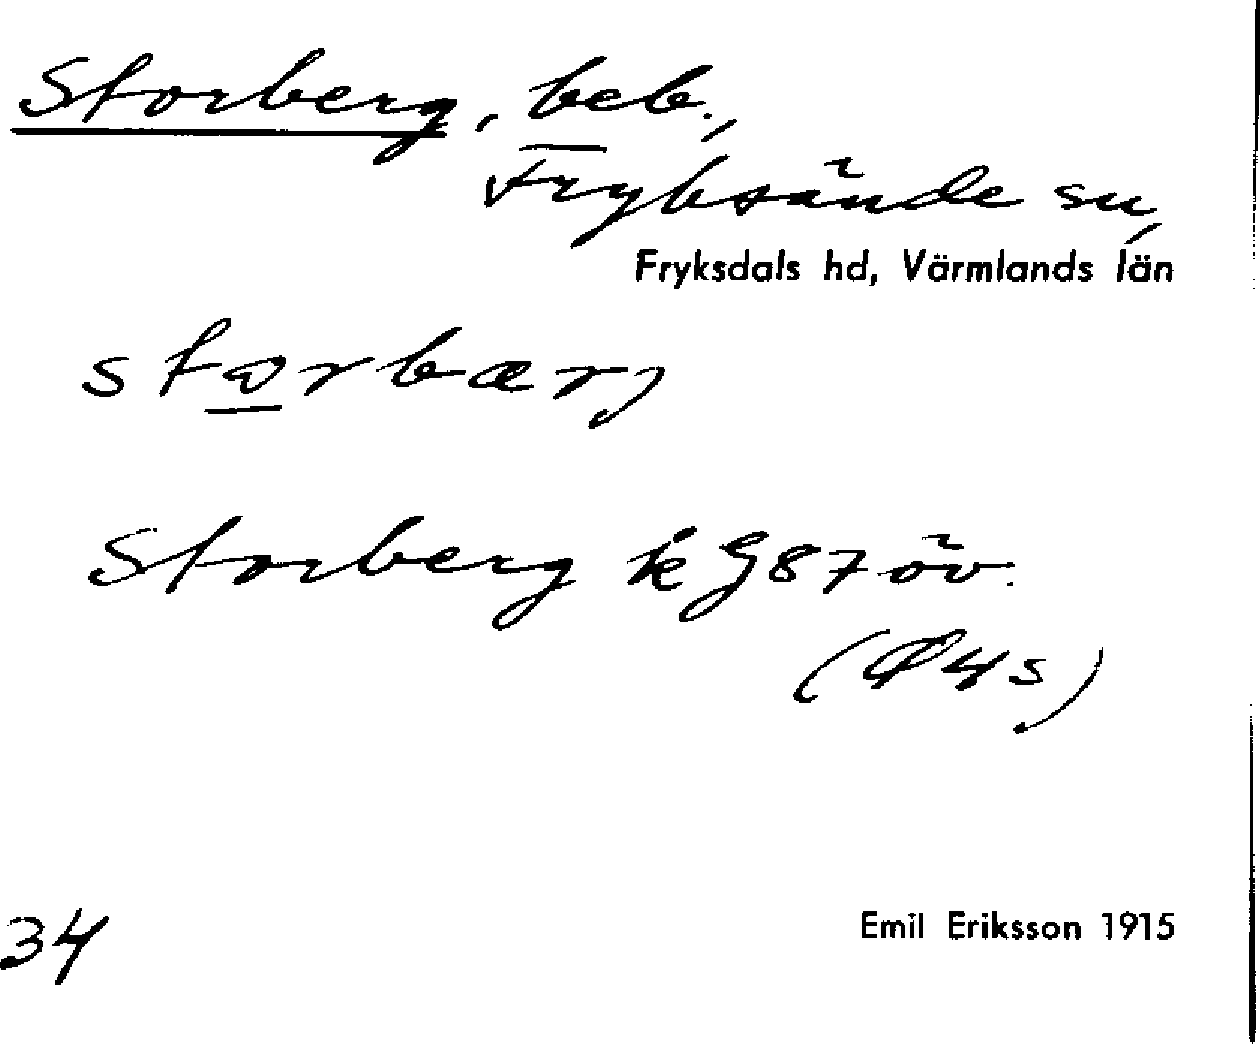 Storberg, beb.,
Fryksände sn,
Fryksdals hd, Värmlands län
Storberg k G87 öv.
34
Emil Eriksson 1915